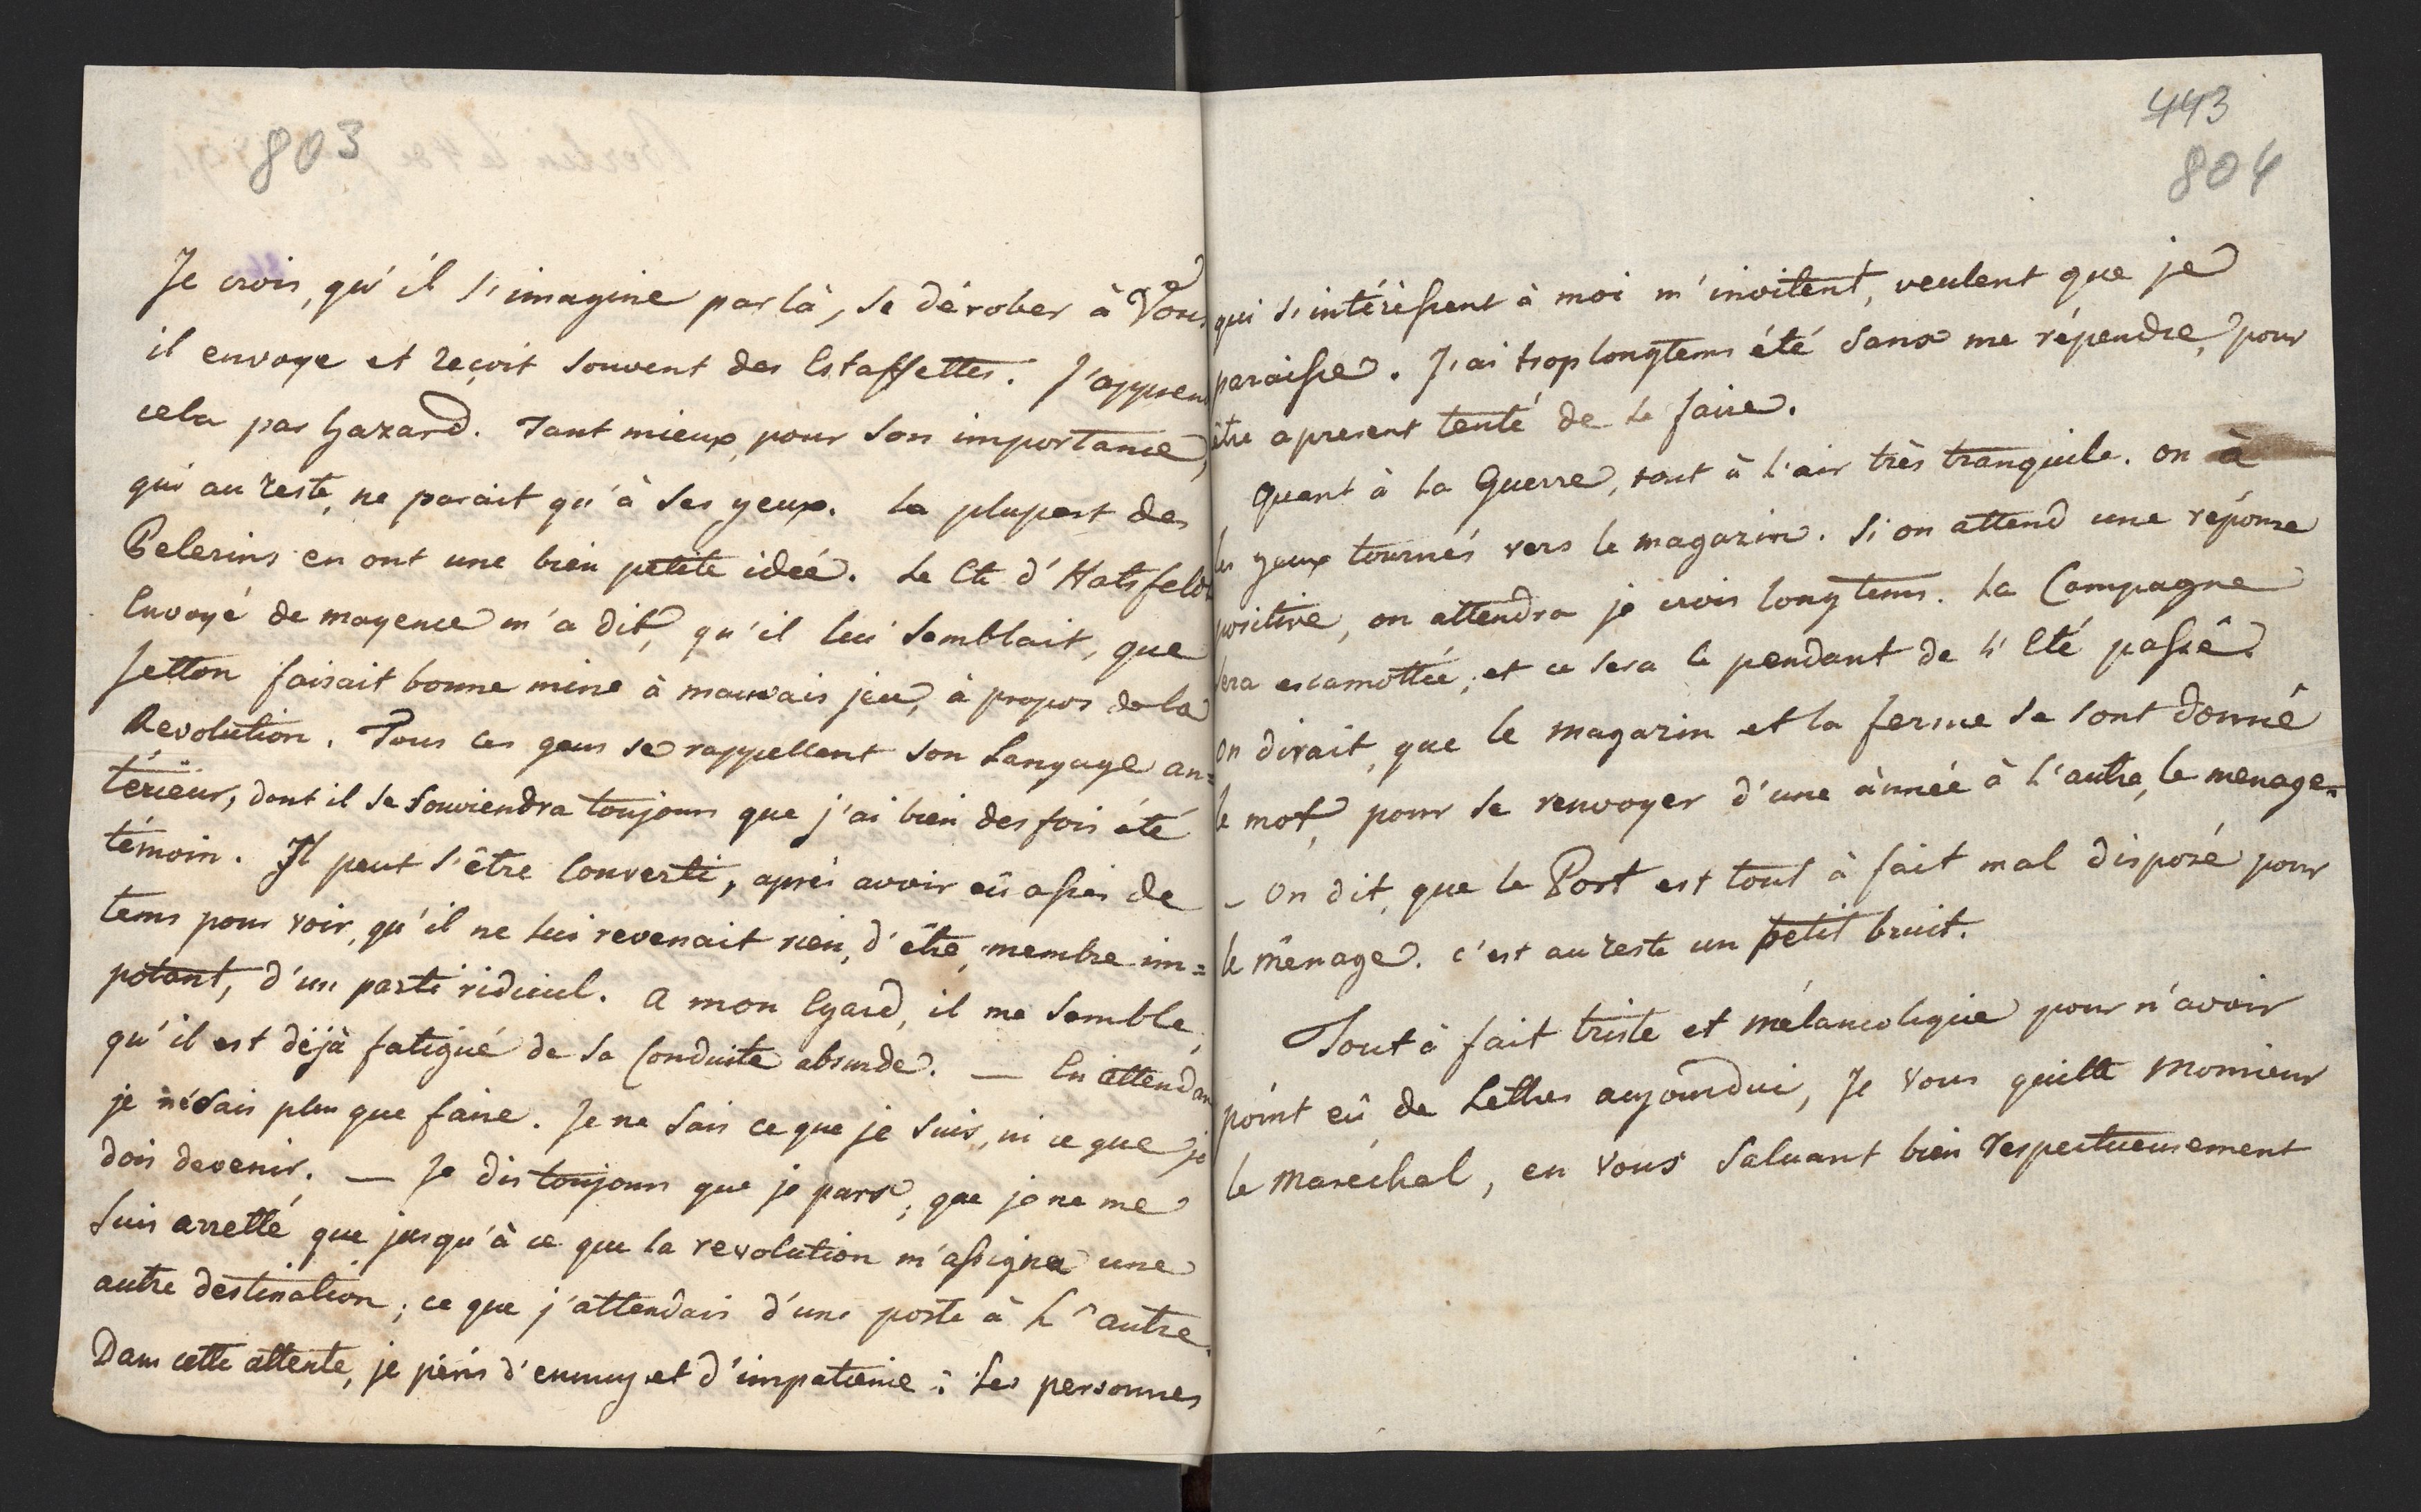 803
Je crois, qu'il s'imagine par là, se dérober à Vous
il envoye et reçoit souvent des Estaffettes. J'apprens
cela par hazard. Tant mieux, pour son importance,
qui au reste, ne parait qu'à ses yeux. La plupart des
Pelerins en ont une bien petite idée. Le Cte d'Hatsfeldt
Envoyé de mayence m'a dit, qu'il lui semblait, que
Jetton faisait bonne mine à mauvais jeu, à propos de la
Revolution. Tous ces gens se rappellent son Langage an=
térieur, dont il se souviendra toujours que j'ai bien des fois été
témoin. Il peut s'être converti, après avoir eû assés de
tems pour voir, qu'il ne lui revenait rien, d'être, membre im=
potant, d'un parti ridicul. A mon Egard, il me semble,
qu'il est déjà fatigué de sa Conduite absurde. — En attendant
je ne sais plus que faire. Je ne sais ce que je suis, ni ce que je
dois devenir. — Je dis toujours que je pars, que je ne me
suis arretté que jusqu'à ce que la revolution m'assigne une
autre destination; ce que j'attendais d'une poste à L'autre.
Dans cette attente, je péris d'ennuy et d'impatience: Les personnes
443
804
qui s'intérèssent à moi m'invitent, veulent que je
paraisse. J'ai trop longtems été sans me répendre, pour
être apresent tenté de le faire.
Quant à la Guerre, tout à l'air très tranquile. on à
les yeux tournés vers le magazin. Si on attend une réponse
positive, on attendra je crois longtems. La Campagne
sera escamottée, et ce sera le pendant de l'Eté passé.
On dirait, que le magazin et la ferme se sont donné
le mot, pour se renvoyer d'une année à l'autre, le menage.=
- On dit, que le Port est tout à fait mal disposé pour
le ménage. c'est au reste un petit bruit.
Tout à fait triste et mélancolique pour n'avoir
point eû de Lettres aujourdui, Je vous quitte Monsieur
le Maréchal, en vous saluant bien respectueusement